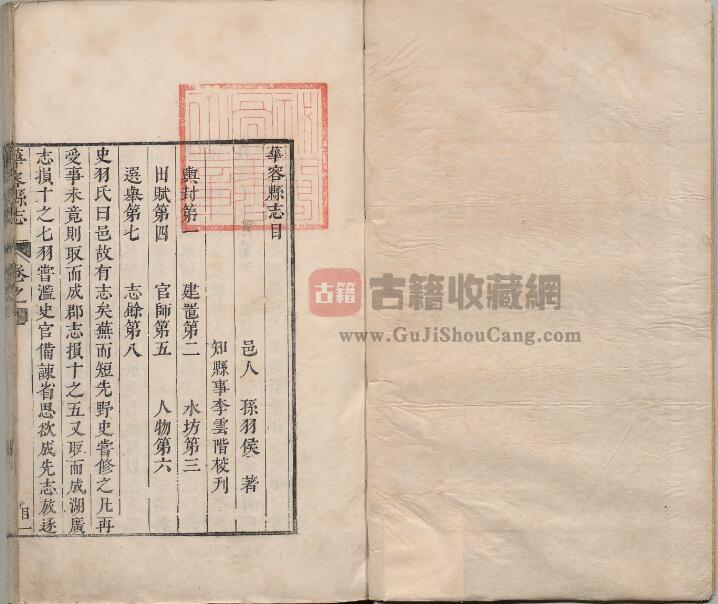 華容縣志目
邑人 孫羽侯 著
知縣事李雲階梓刊
輿封第一 建置第二 水坊第三
田賦第四 官師第五 人物第六
選舉第七 志餘第八
史羽氏曰邑故有志矣蕪而短先野史嘗修之凡再
受事未竟則取而成郡志損十之五又取而成湖廣
志損十之七羽嘗濫史官備諫省思欲成先志放逐
華容縣志 卷之一
目一
古籍 古籍收藏網
www.GuJiShouCang.com